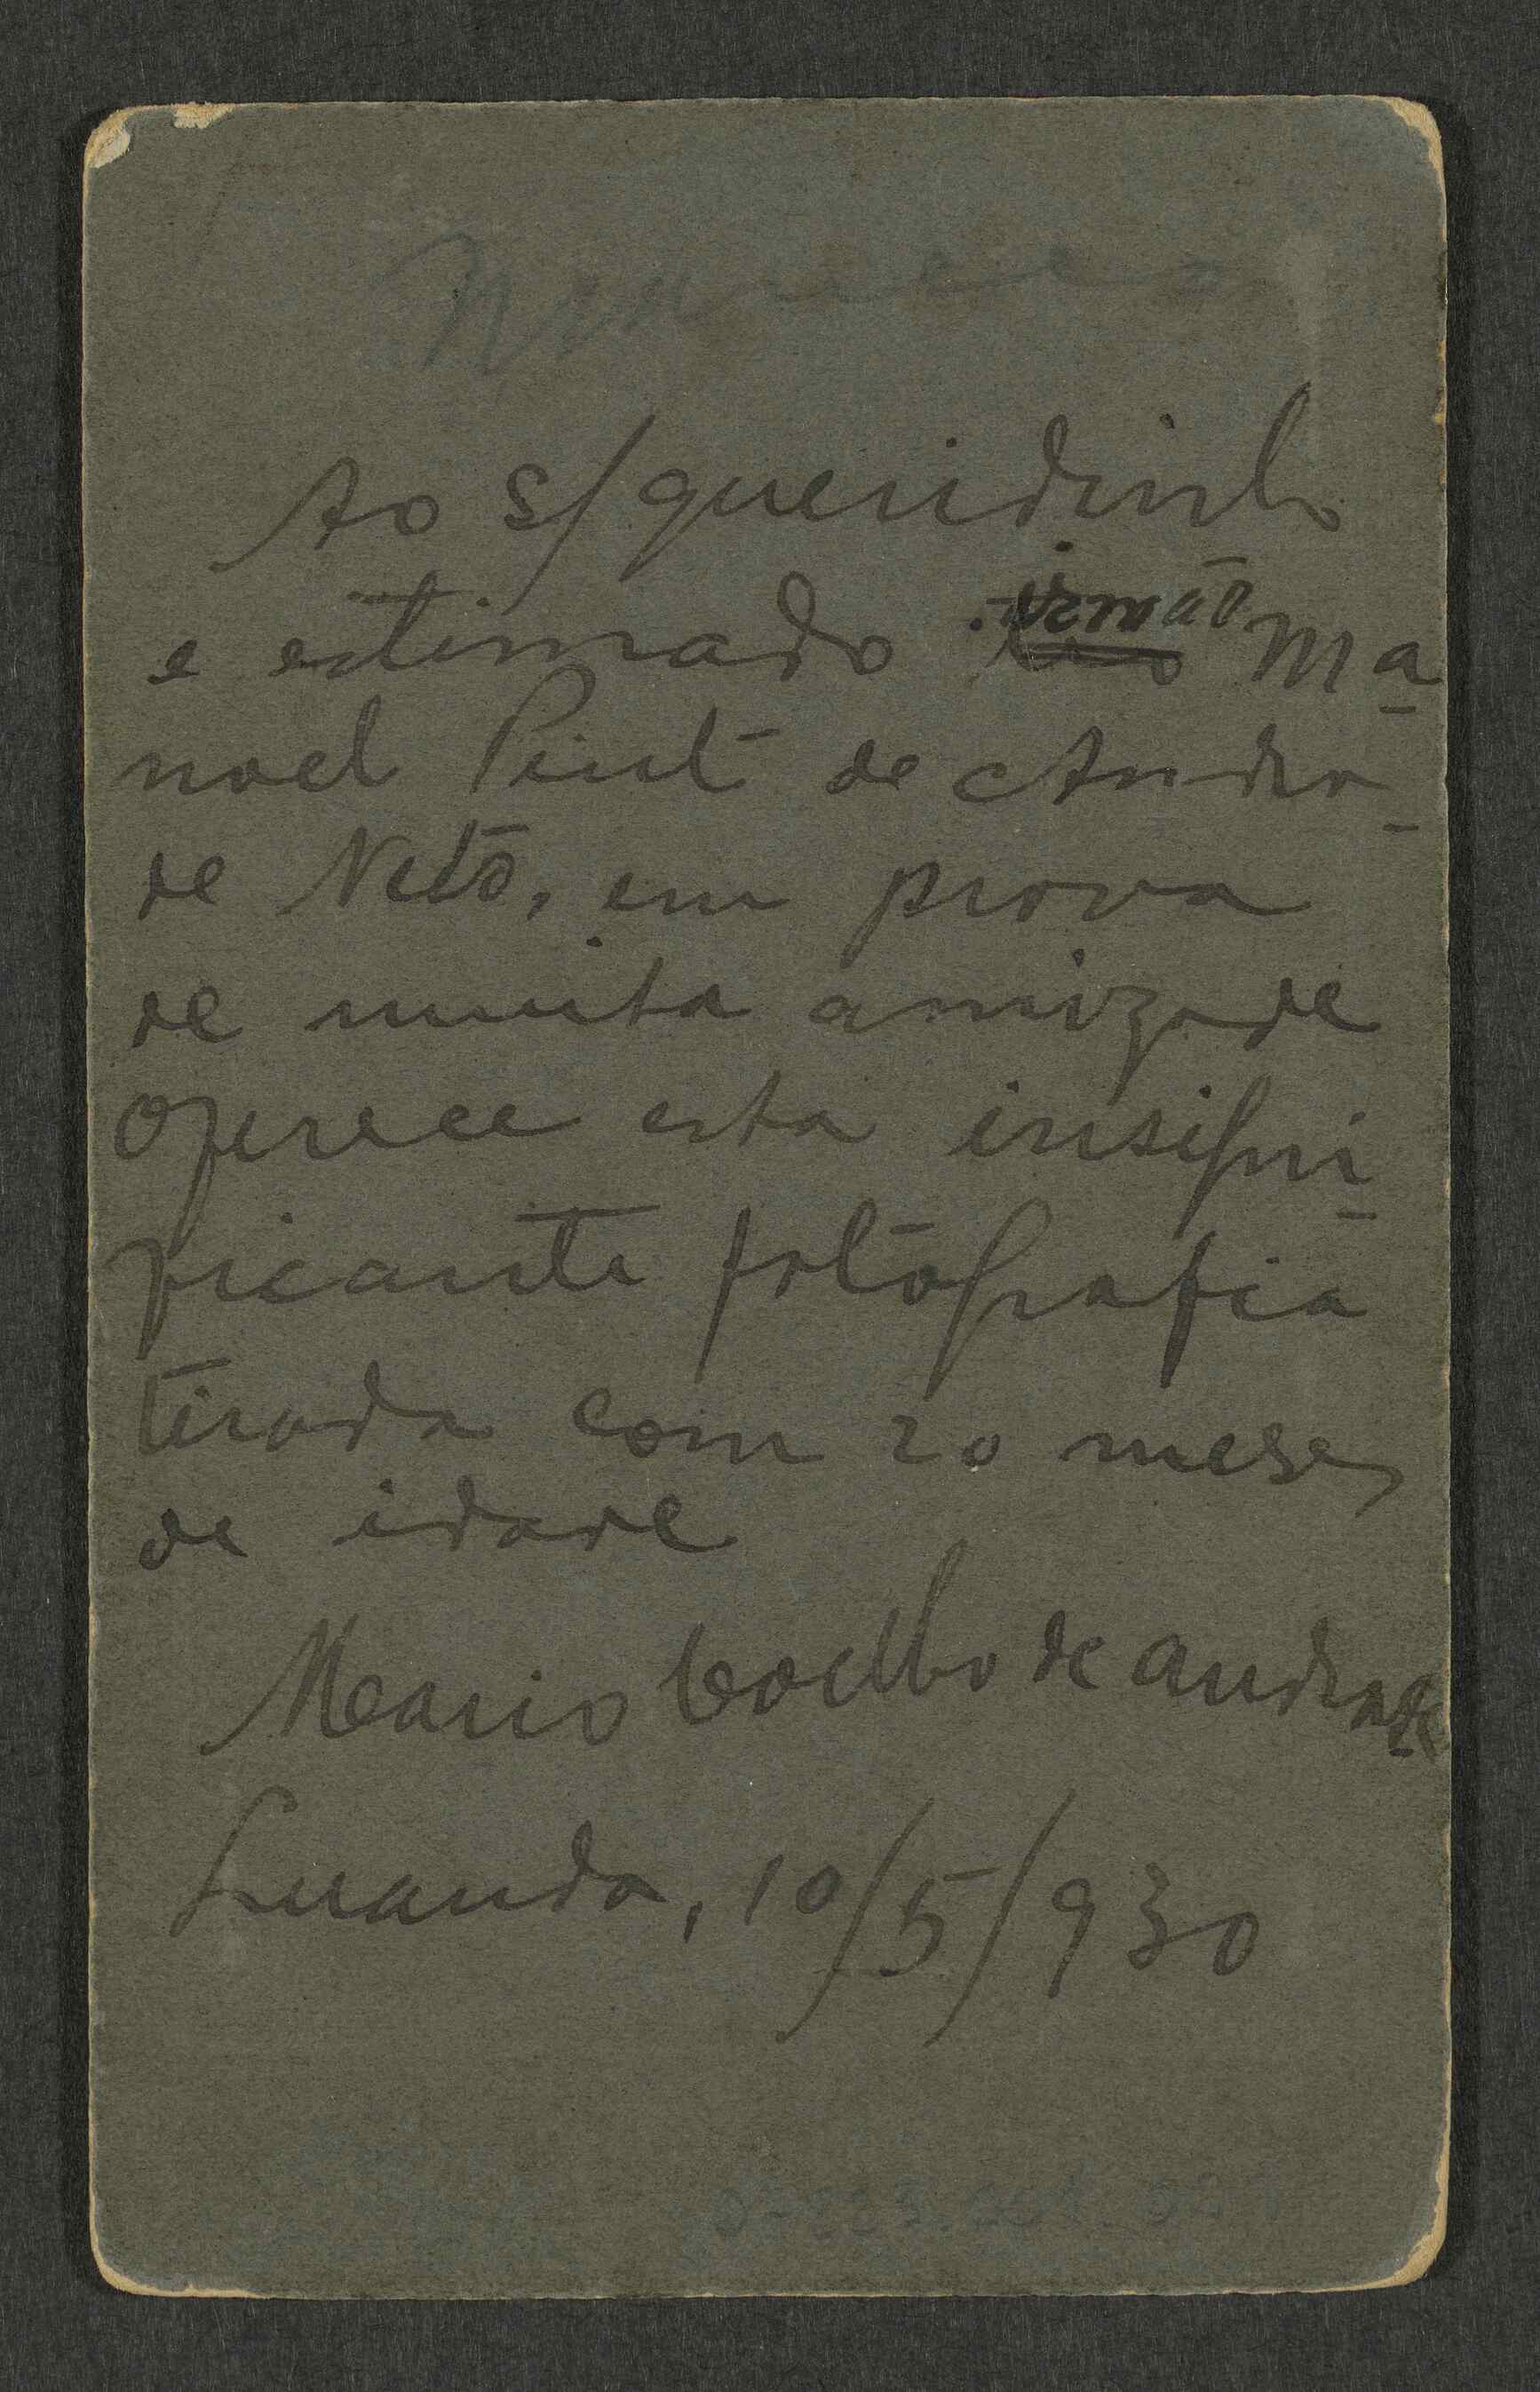 Ao s/ queridinho
e estimado irmão Ma
noel Pinto de Andra
de Neto, em prova
de muita amizade
oferece esta insigni
ficante fotografia
tirada com 20 meses
de idade
Mario Coelho de Andrade
Luanda, 10/5/930